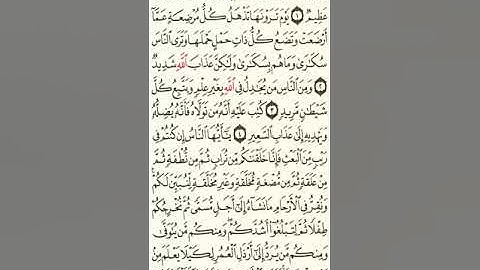 عَظِيمٌ ١ يَوْمَ تَرَوْنَهَا تَذْهَلُ كُلُّ مُرْضِعَةٍ عَمَّا
أَرْضَعَتْ وَتَضَعُ كُلُّ ذَاتِ حَمْلٍ حَمْلَهَا وَتَرَى النَّاسَ
سُكَارَىٰ وَمَا هُم بِسُكَارَىٰ وَلَٰكِنَّ عَذَابَ اللَّهِ شَدِيدٌ
٢ وَمِنَ النَّاسِ مَن يُجَادِلُ فِي اللَّهِ بِغَيْرِ عِلْمٍ وَيَتَّبِعُ كُلَّ
شَيْطَانٍ مَّرِيدٍ ٣ كُتِبَ عَلَيْهِ أَنَّهُ مَن تَوَلَّاهُ فَأَنَّهُ يُضِلُّهُ
وَيَهْدِيهِ إِلَىٰ عَذَابِ السَّعِيرِ ٤ يَا أَيُّهَا النَّاسُ إِن كُنتُمْ فِي
رَيْبٍ مِّنَ الْبَعْثِ فَإِنَّا خَلَقْنَاكُم مِّن تُرَابٍ ثُمَّ مِن نُّطْفَةٍ ثُمَّ
مِنْ عَلَقَةٍ ثُمَّ مِن مُّضْغَةٍ مُّخَلَّقَةٍ وَغَيْرِ مُخَلَّقَةٍ لِّنُبَيِّنَ لَكُمْ
وَنُقِرُّ فِي الْأَرْحَامِ مَا نَشَاءُ إِلَىٰ أَجَلٍ مُّسَمًّى ثُمَّ نُخْرِجُكُمْ
طِفْلًا ثُمَّ لِتَبْلُغُوا أَشُدَّكُمْ وَمِنكُم مَّن يُتَوَفَّىٰ
وَمِنكُم مَّن يُرَدُّ إِلَىٰ أَرْذَلِ الْعُمُرِ لِكَيْلَا يَعْلَمَ مِن